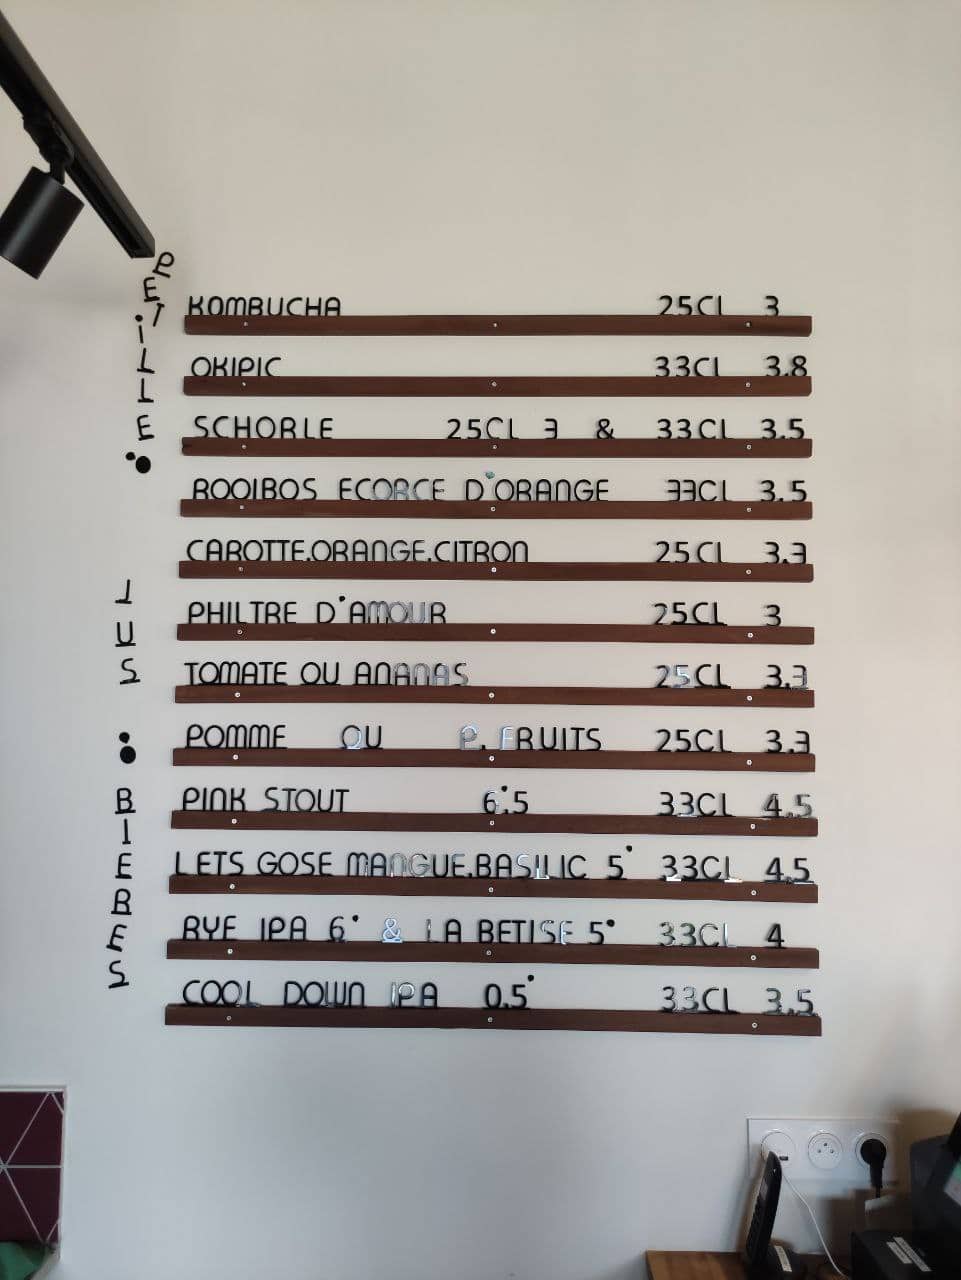 PETILLE
KOMBUCHA 25CL 3
OKIPIC 33CL 3.8
SCHORLE 25CL 3 & 33CL 3.5
ROOIBOS ECORCE D'ORANGE 33CL 3.5
CAROTTE.ORANGE.CITRON 25CL 3.3
JUS
PHILTRE D'AMOUR 25CL 3
TOMATE OU ANANAS 25CL 3.3
POMME OU P. FRUITS 25CL 3.3
BIERES
PINK STOUT 6°.5 33CL 4.5
LETS GOSE MANGUE.BASILIC 5° 33CL 4.5
RYE IPA 6° & LA BETISE 5° 33CL 4
COOL DOWN IPA 0.5° 33CL 3.5